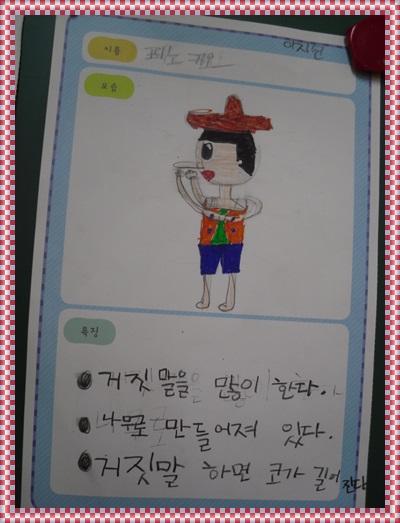 이름 피노키오
모습
특징
거짓말을 많이 한다.
나무로 만들어져 있다.
거짓말 하면 코가 길어진다